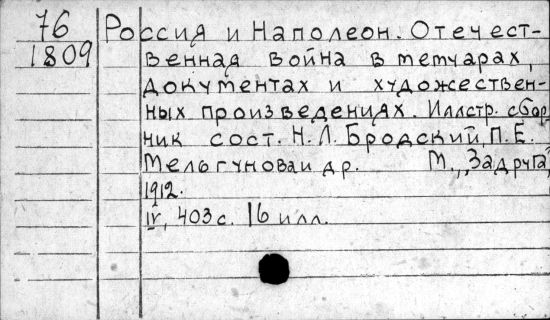 76 Россия и Наполеон. Отечест-
1809 венная война в мемуарах,
документах и художествен-
ных произведениях. Иллстр. сбор
ник сост. Н.Л. Бродский, П.Е.
Мельгунова и др. М., „Задруга“,
1912.
IV, 403 с. 16 илл.